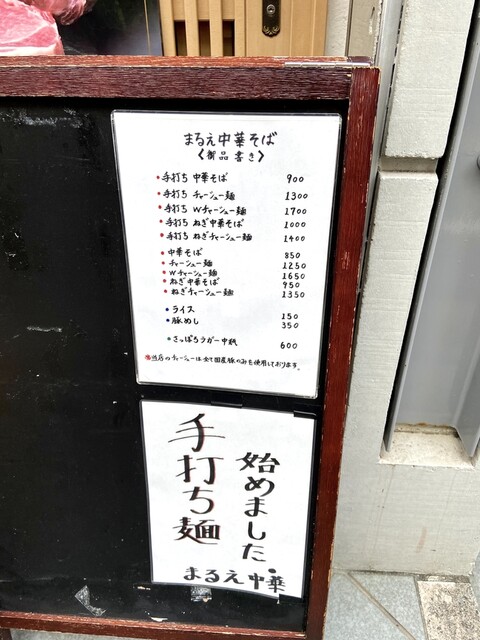 まるえ中華そば
〈御品書き〉
• 手打ち 中華そば 900
• 手打ち チャーシュー麺 1300
• 手打ち Wチャーシュー麺 1700
• 手打ち ねぎ中華そば 1000
• 手打ち ねぎチャーシュー麺 1400
• 中華そば 850
• チャーシュー麺 1250
• Wチャーシュー麺 1650
• ねぎ中華そば 950
• ねぎチャーシュー麺 1350
• ライス 150
• 豚めし 350
• さっぽろラガー中瓶 600
当店のチャーシューは全て国産豚のみを使用しております。
手打ち麺
始めました。
まるえ中華